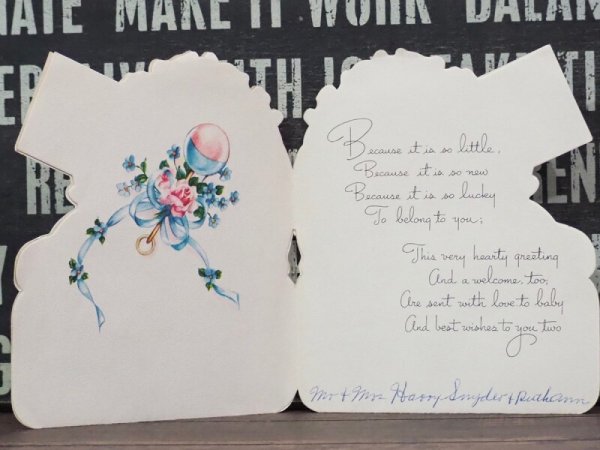 MAKE IT WORK BALAN
Because it is so little,
Because it is so new
Because it is so lucky
To belong to you;
This very hearty greeting
And a welcome, too,
Are sent with love to baby
And best wishes to you two
Mr & Mrs Harry Snyder & Ruthann